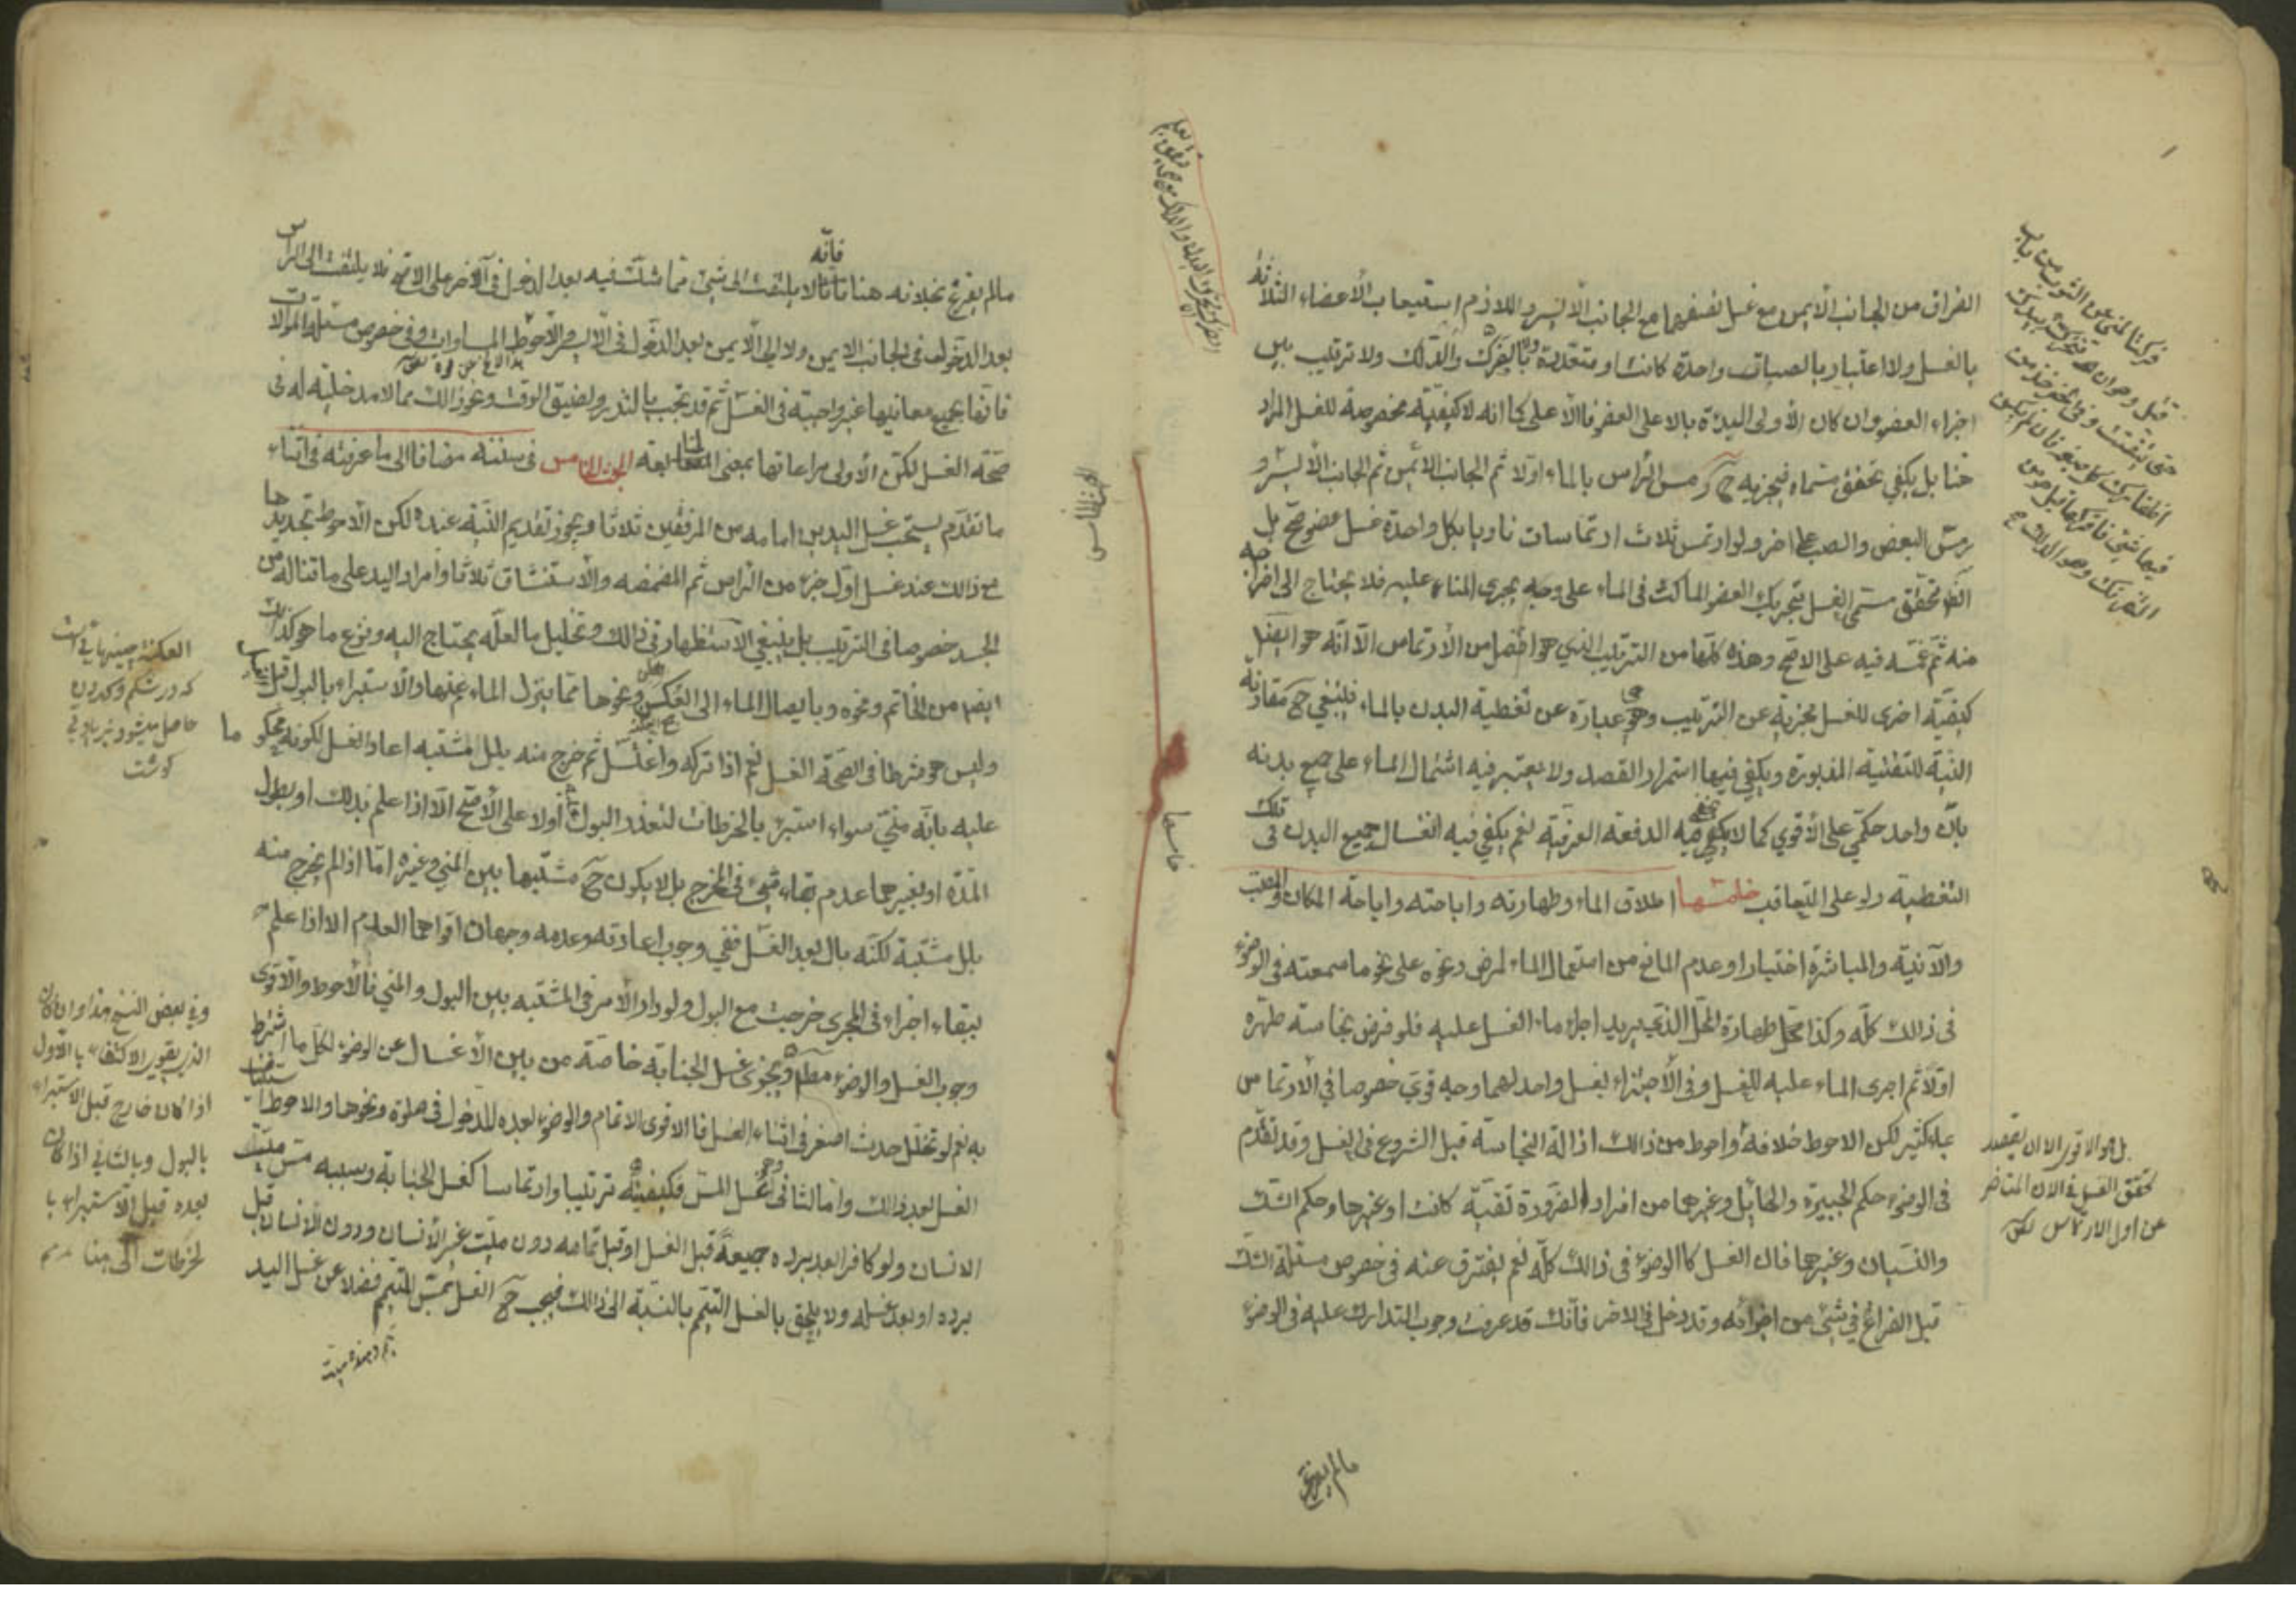 الفراق من الجانب الأيمن مع غسل نصفهما مع الجانب الأيسر واللازم استيعاب الأعضاء الثلاثة
بالغسل ولا اعتبار بالصبات واحدة كانت او متعددة ولا بالفرك والدلك ولا ترتيب بين
اجزاء العضو وان كان الأولى البدئة بالاعلى العضو فالأعلى كما انه لا كيفيّة مخصوصة للغسل المراد
هنا بل يكفي تحقق مسماه فيجزيه ح رمس الرأس بالماء اولا ثم الجانب الأيمن ثم الجانب الأيسر و
رمس البعض والصب على اخر ولو ارتمس ثلاث ارتماسات ناويا بكل واحدة غسل عضو صح بل
تحقق مسمى الغسل بتحريك العضو الماكث في الماء على وجه يجرى الماء عليه فلا يحتاج الى اخراجه
منه ثم غمسه فيه على الاصح وهذه كلّها من الترتيب الذي هو افضل من الأرتماس الّا انّه هو ايضا
كيفيّة اخرى للغسل مجزية عن الترتيب وهو عبارة عن تغطية البدن بالماء فينبغي ح مقارنة
النيّة للتغطية المزبورة ويكفي فيها استمرار القصد ولا يعتبر فيه اشتمال الماء على جميع بدنه
بان واحد حكمّي على الأقوي كما لا يكفي فيه الدفعة العرفيّة نعم يكفي فيه انغسال جميع البدن في تلك
التغطية ولو على التعاقب خامسها اطلاق الماء وطهارته واباحته واباحة المكان والمصبّ
والآنية والمباشرة اختيارا وعدم المانع من استعمال الماء لمرض ونحوه على نحو ما سمعته في الوضوء
في ذالك كلّه وكذا طهارة المحلّ الذي يريد اجراء ماء الغسل عليه فلو فرض نجاسته طهره
اولّا ثم اجرى الماء عليه للغسل وفي الأجتزاء بغسل واحد لهما وجه قويّ خصوصا في الأرتماس
بماء كثير لكن الاحوط خلافه واحوط من ذالك ازالة النجاسة قبل الشروع في الغسل وقد تقدّم
في الوضوء حكم الجبيرة والحائل وغيرهما من افراد الضرورة تقيّة كانت او غيرها وحكم الشّك
والنسيان وغيرهما فان الغسل كالوضوء في ذالك كلّه نعم يفترق عنه في خصوص مسئلة الشك
قبل الفراغ في شيء من اجزائه وقد دخل في الاخر فانّك قد عرفت وجوب التدارك عليه في الوضوء
مالم يفرغ
بل هو الاقوى الا ان يقصد
تحقق الغسل في الان المتاخر
عن اول الارتماس
خامسها
الخامس
مالم يفرغ بخلافه هنا فانّه لا يلتفت الى شيء ممّا شكّ فيه بعد الدخول في آلاخر على الاصح فلا يلتفت الى الرأس
بعد الدخول في الجانب الايمن ولا الى الأيمن بعد الدخول في الأيسر والأحوط المساوات وفي خصوص مسئلة الموالات
فانّها بجميع معانيها غير واجبة في الغسل ثم قد تجب بالنذر ولضيق الوقت ونحو ذالك ممالا مدخلية له في
صحّة الغسل لكن الأولى مراعاتها بمعنى المتابعة الخامس في سننه مضافا الى ما عرفته في اثناء
ما تقدّم يستحب غسل اليدين امامه من المرفقين ثلاثا ويجوز تقديم النيّة عنده لكن الأحوط تجديدها
مع ذالك عند غسل اوّل جزء من الرأس ثم المضمضه والأستنشاق ثلاثا وامرار اليد على ما تناله من
الجسد خصوصا في الترتيب بل ينبغي الأستظهار في ذالك وتخليل ما لعلّه يحتاج اليه ونزع ما هو كذالك
ايضا من الخاتم ونحوه وبايصال الماء الى العكن ونحوها ممّا ينزل الماء عنها والأستبراء بالبول قبل
وليس هو شرطا في الصحّة الغسل نعم اذا تركه واغتسل ثم خرج منه بلل مشتبه اعاد الغسل لكونه محكوما
عليه بانّه منيّ سواء استبرء بالخرطات لتعذر البول اولا على الأصّح الّا اذا علم بذلك او بطول
المدّة او بغيرهما عدم بقاء شيء في المخرج بل لا يكون ح مشتبها بين المني وغيره امّا اذا لم يخرج منه
بلل مشتبة لكنّه بال بعد الغسل ففي وجوب اعادته وعدمه وجهان اقواهما العدم الا اذا علم
ببقاء اجزاء في المجرى خرجت مع البول ولو دار الأمر في المشتبه بين البول والمني فالأحوط والأقوى
وجوب الغسل والوضوء مطلقا ويجزى غسل الجنابة خاصّة من بين الأغسال عن الوضوء لكلّ ما اشترط
به نعم لو تخلل حدث اصغر في اثناء الغسل فالاقوى الاتمام والوضوء بعده للدخول في صلوة ونحوها والاحوط استيناف
الغسل بعد ذالك وامّا الثاني وهو غسل المسّ فكيفيّته ترتيبا وارتماسا كغسل الجنابة وسببه مسّ ميّت
الانسان ولو كافرا بعد برده جميعه قبل الغسل او قبل تمامه دون ميّت غير الأنسان ودون الأنسان قبل
برده او بعد غسله ولا يلحق بالغسل التيمّم بالنسبة الى ذالك فيجب ح الغسل بمسّ الميمّم فضلا عن غسل اليد
وفي بعض النسخ هذا وان كان
الذي يقوى الاكتفاء بالأول
اذا كان خارج قبل الاستبراء
بالبول وبالثاني اذا كان
بعده قبل الأستبراء با
لخرطات الى هنا
كه در شكم
حاصل ميشود
كوشت